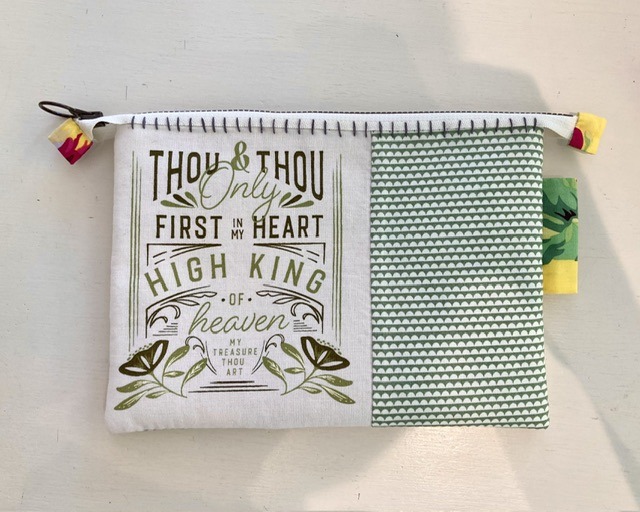 THOU & THOU
Only
FIRST IN MY HEART
HIGH KING
OF
heaven
MY
TREASURE
THOU
ART